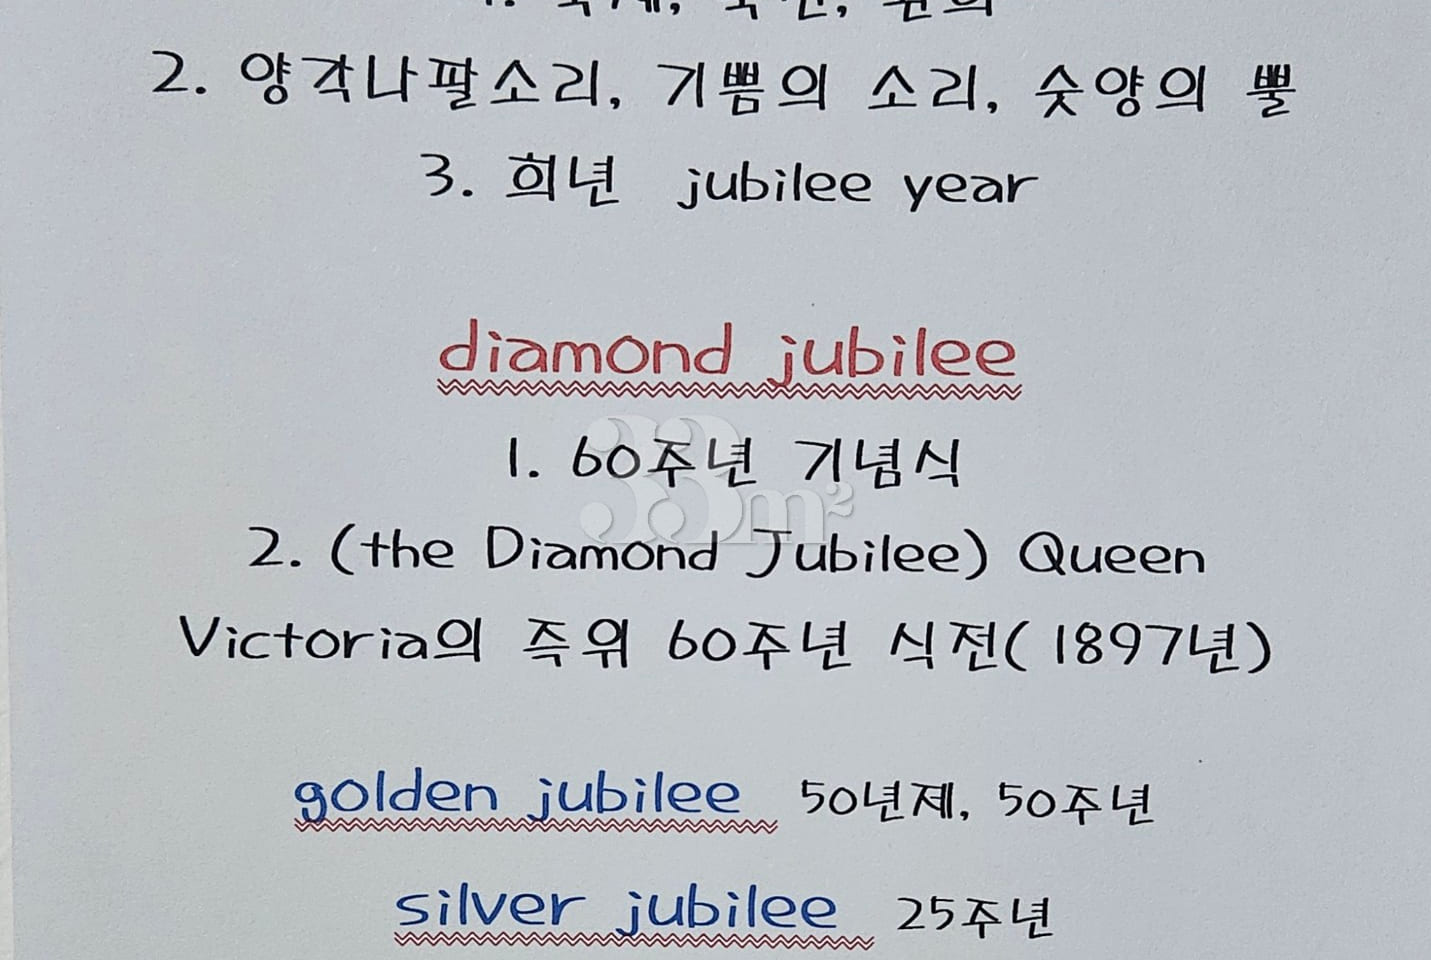 2. 양각나팔소리, 기쁨의 소리, 숫양의 뿔
3. 희년 jubilee year
diamond jubilee
1. 60주년 기념식
33m²
2. (the Diamond Jubilee) Queen
Victoria의 즉위 60주년 식전( 1897년)
golden jubilee 50년제, 50주년
silver jubilee 25주년